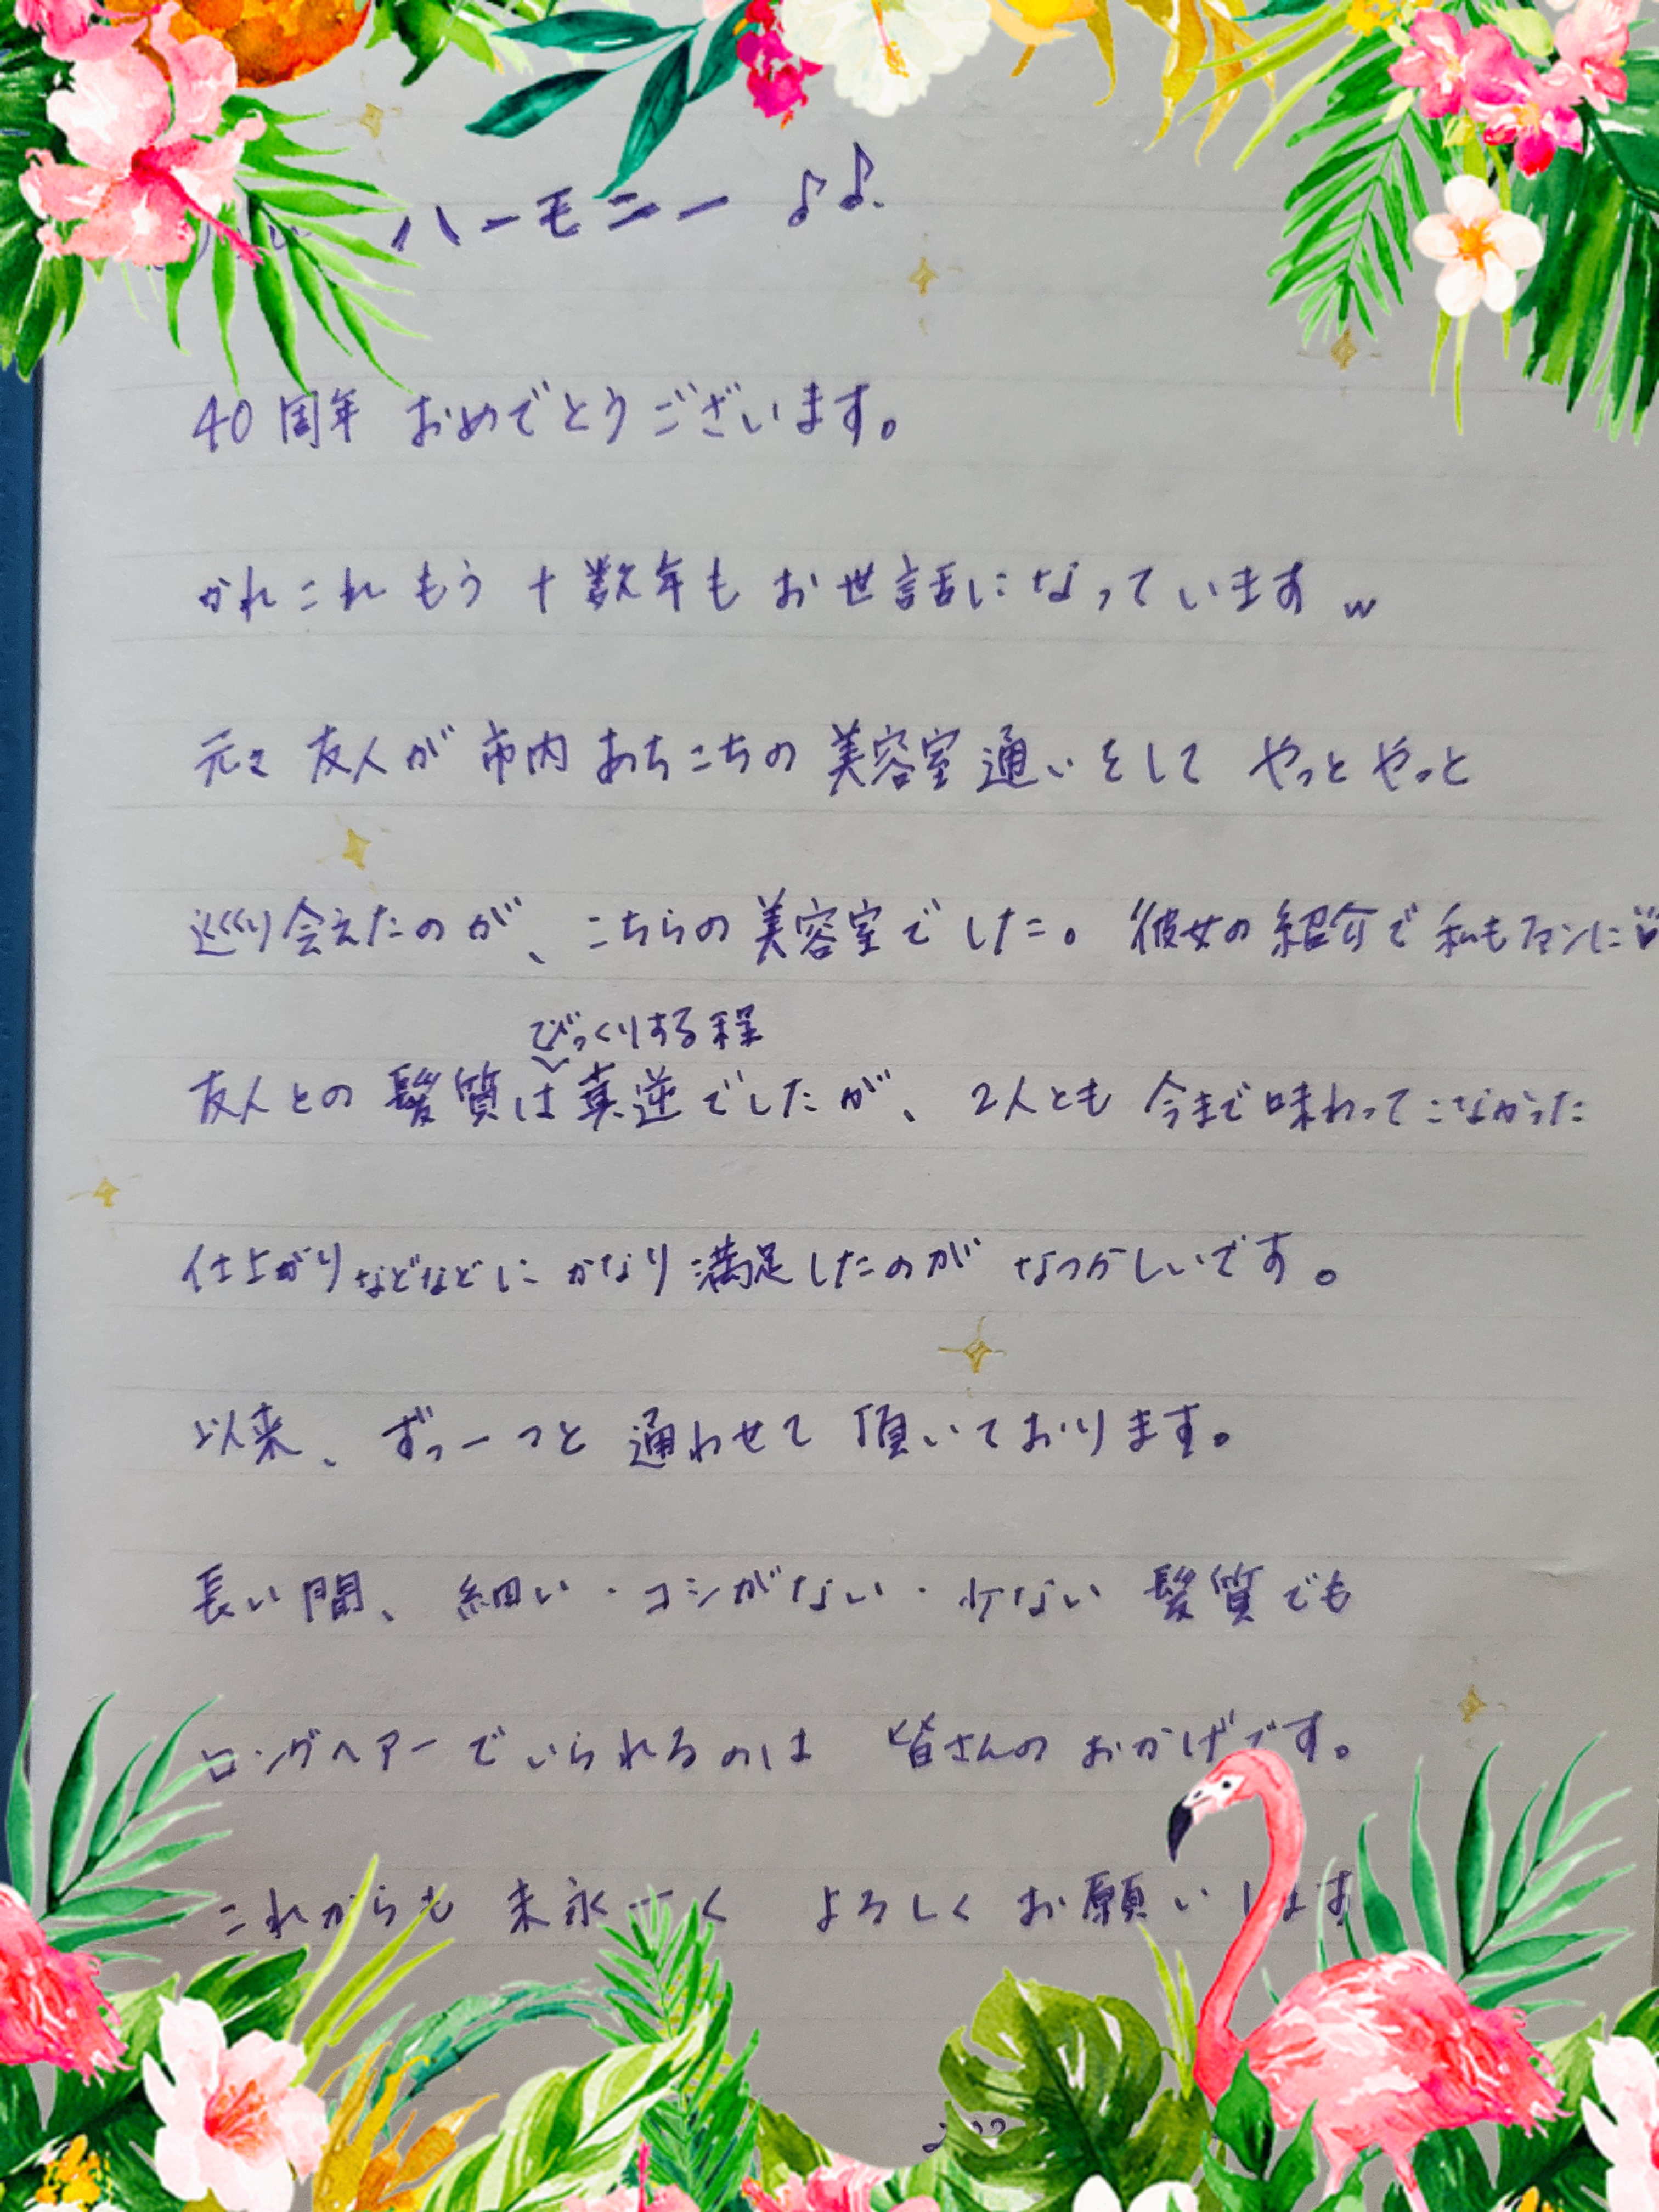 ハーモニー ♪♪
40周年 おめでとうございます。
かれこれ もう 十数年も お世話になっています w
元々 友人が 市内 あちこちの 美容室 通いをして やっと やっと
巡り会えたのが、こちらの 美容室でした。彼女の 紹介で 私もファンに♥
びっくりする程
友人との 髪質は真逆でしたが、2人とも 今まで味わってこなかった
仕上がりなどなどに かなり 満足したのが なつかしいです。
以来、ずっーっと 通わせて 頂いております。
長い間、細い・コシがない・少ない 髪質でも
ロングヘアーでいられるのは 皆さんの おかげです。
これからも 末永ーく よろしく お願いします